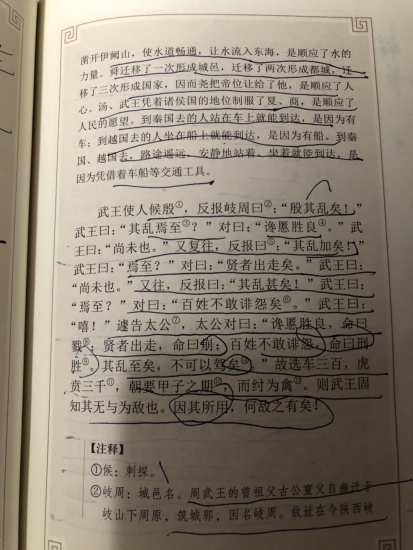 凿开伊阙山，使水道畅通，让水流入东海，是顺应了水的
力量。舜迁移了一次形成城邑，迁移了两次形成都城，迁
移了三次形成国家，因而尧把帝位让给了他，是顺应了人
心。汤、武王凭着诸侯国的地位制服了夏、商，是顺应了
人民的愿望。到秦国去的人站在车上就能到达，是因为有
车；到越国去的人坐在船上就能到达，是因为有船。到秦
国、越国去，路途遥远，安静地站着、坐着就能到达，是
因为凭借着车船等交通工具。
武王使人候殷①，反报岐周曰②：“殷其乱矣！”
武王曰：“其乱焉至③？”对曰：“谗慝胜良④。”武
王曰：“尚未也。”又复往，反报曰⑤：“其乱加矣！”
武王曰：“焉至？”对曰：“贤者出走矣。”武王曰：
“尚未也。”又往，反报曰：“其乱甚矣！”武王曰：
“焉至？”对曰：“百姓不敢诽怨矣⑥。”武王曰：
“嘻！”遽告太公⑦，太公对曰：“谗慝胜良，命曰
戮⑧；贤者出走，命曰崩；百姓不敢诽怨，命曰刑
胜⑨。其乱至矣，不可以驾矣⑩。”故选车三百，虎
贲三千⑪，朝要甲子之期⑫，而纣为禽⑬。则武王固
知其无与为敌也。因其所用，何敌之有矣！
【注释】
①候：刺探。
②岐周：城邑名。周武王的曾祖父古公亶父自豳迁于
岐山下周原，筑城郭，因名岐周。故址在今陕西岐